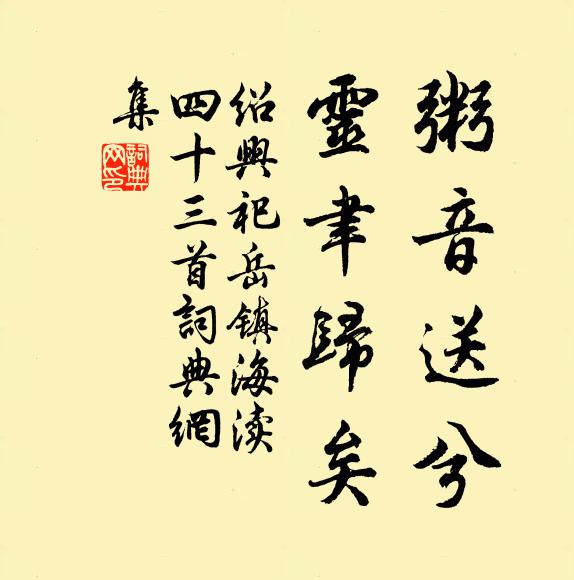 粥音送兮
靈聿歸矣
紹興祀岳鎮海渎
四十三首詞典網
集
詞典網印